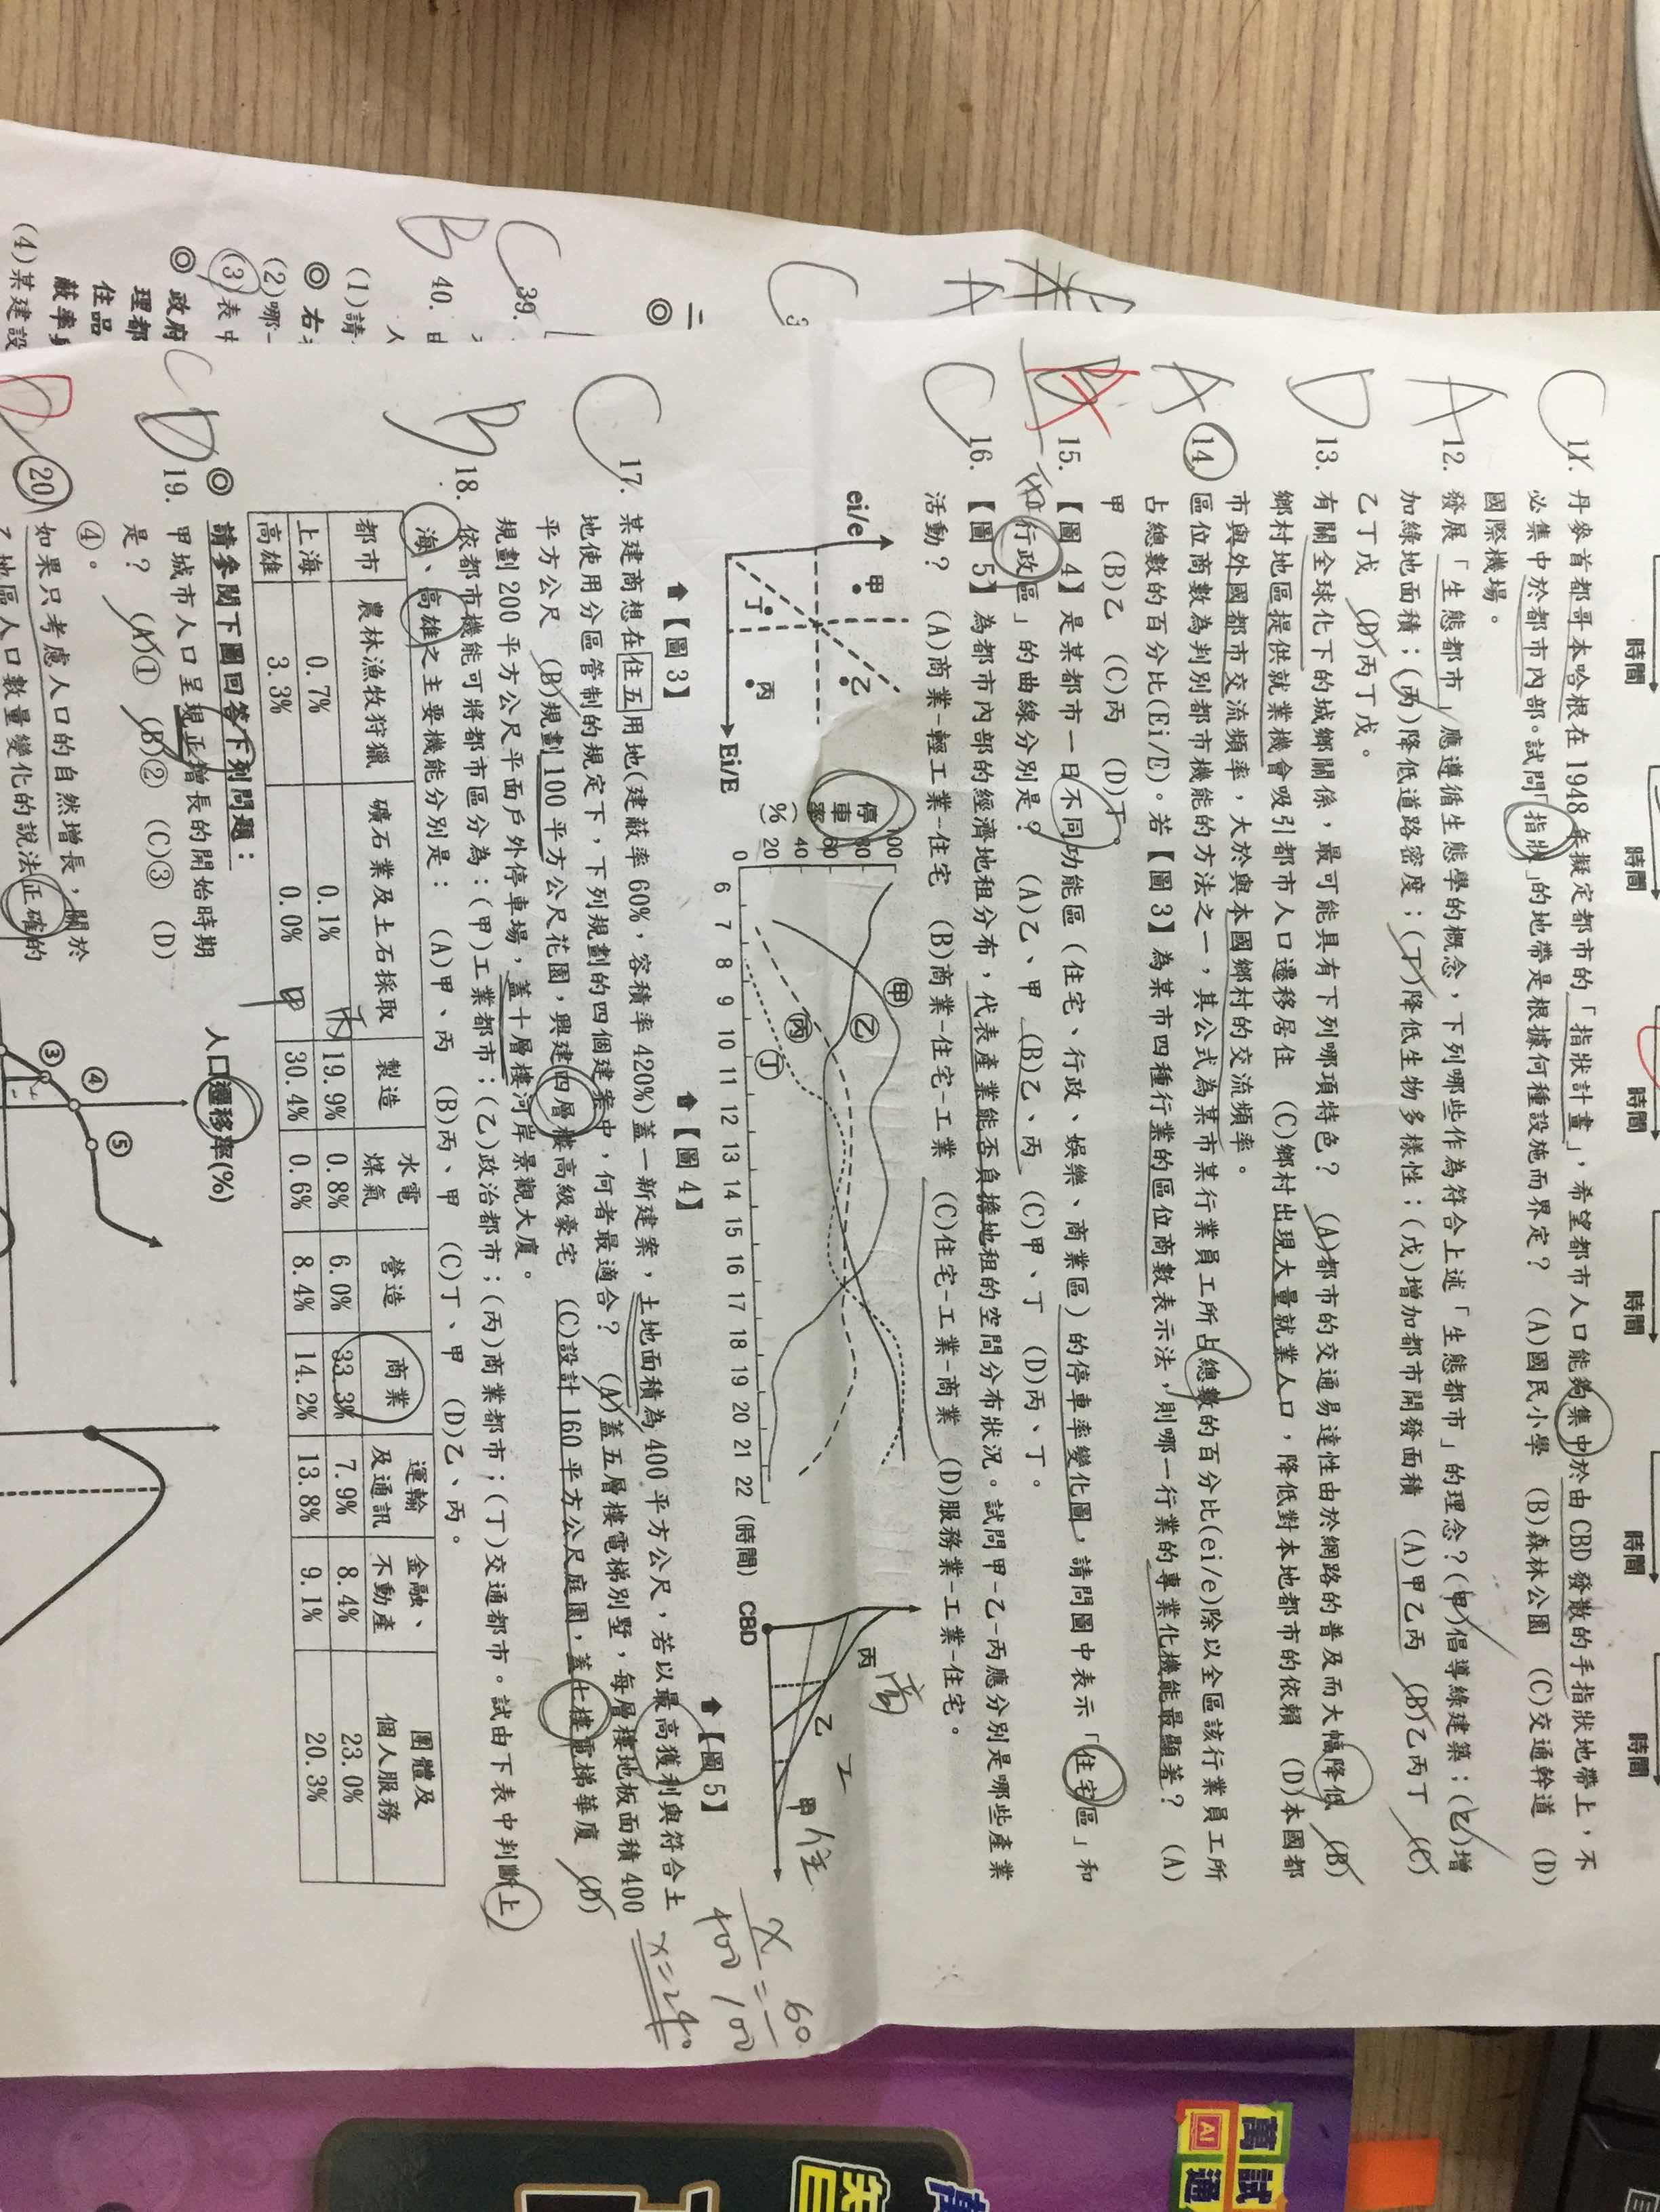 時間 時間 時間 時間 時間 時間
C 11. 丹麥首都哥本哈根在 1948 年擬定都市的「指狀計畫」，希望都市人口能夠集中於由 CBD 發散的手指狀地帶上，不
必集中於都市內部。試問「指狀」的地帶是根據何種設施而界定？ (A)國民小學 (B)森林公園 (C)交通幹道 (D)
國際機場。
A 12. 發展「生態都市」應遵循生態學的概念，下列哪些作為符合上述「生態都市」的理念？(甲)倡導綠建築；(乙)增
加綠地面積；(丙)降低道路密度；(丁)降低生物多樣性；(戊)增加都市開發面積 (A)甲乙丙 (B)乙丙丁 (C)
乙丁戊 (D)丙丁戊。
D 13. 有關全球化下的城鄉關係，最可能具有下列哪項特色？ (A)都市的交通易達性由於網路的普及而大幅降低 (B)
鄉村地區提供就業機會吸引都市人口遷移居住 (C)鄉村出現大量就業人口，降低對本地都市的依賴 (D)本國都
市與外國都市交流頻率，大於與本國鄉村的交流頻率。
A 14. 區位商數為判別都市機能的方法之一，其公式為某市某行業員工所占總數的百分比(ei/e)除以全區該行業員工所
占總數的百分比(Ei/E)。若【圖 3】為某市四種行業的區位商數表示法，則哪一行業的專業化機能最顯著？ (A)
甲 (B)乙 (C)丙 (D)丁。
15. 【圖 4】是某都市一日不同功能區（住宅、行政、娛樂、商業區）的停車率變化圖，請問圖中表示「住宅區」和
「行政區」的曲線分別是？ (A)乙、甲 (B)乙、丙 (C)甲、丁 (D)丙、丁。
C 16. 【圖 5】為都市內部的經濟地租分布，代表產業能否負擔地租的空間分布狀況。試問甲-乙-丙應分別是哪些產業
活動？ (A)商業-輕工業-住宅 (B)商業-住宅-工業 (C)住宅-工業-商業 (D)服務業-工業-住宅。
ei/e 甲 乙 丙 丁 Ei/E
停車率(%) 100 80 60 40 20 0
甲 乙 丙 丁
6 7 8 9 10 11 12 13 14 15 16 17 18 19 20 21 22 (時間)
CBD 丙 乙 甲
商 工 住
【圖 3】 【圖 4】 【圖 5】
C 17. 某建商想在住五用地(建蔽率 60%，容積率 420%)蓋一新建案，土地面積為 400 平方公尺，若以最高獲利與符合土
地使用分區管制的規定下，下列規劃的四個建案中，何者最適合？ (A)蓋五層樓電梯別墅，每層樓地板面積 400
平方公尺 (B)規劃 100 平方公尺花園，興建四層樓高級豪宅 (C)設計 160 平方公尺庭園，蓋七樓電梯華廈 (D)
規劃 200 平方公尺平面戶外停車場，蓋十層樓河岸景觀大廈。
x/400 = 60/100
x=240
B 18. 依都市機能可將都市區分為：(甲)工業都市；(乙)政治都市；(丙)商業都市；(丁)交通都市。試由下表中判斷上
海、高雄之主要機能分別是： (A)甲、丙 (B)丙、甲 (C)丁、甲 (D)乙、丙。
都市 農林漁牧狩獵 礦石業及土石採取 製造 水電煤氣 營造 商業 運輸及通訊 金融、不動產 團體及個人服務
上海 0.7% 0.1% 19.9% 0.8% 6.0% 33.3% 7.9% 8.4% 23.0%
高雄 3.3% 0.0% 30.4% 0.6% 8.4% 14.2% 13.8% 9.1% 20.3%
丙
甲
◎ 請參閱下圖回答下列問題：
D 19. 甲城市人口呈現正增長的開始時期
是？ (A)① (B)② (C)③ (D)
④。
20. 如果只考慮人口的自然增長，關於
乙地區人口數量變化的說法正確的
人口遷移率(%)
③ ④ ⑤
二
◎
C 39.
B 40.
(1)請
◎ 右
(2)哪
(3)表中
◎ 政府
理都
住品
蔽率
(4)某建設
AI